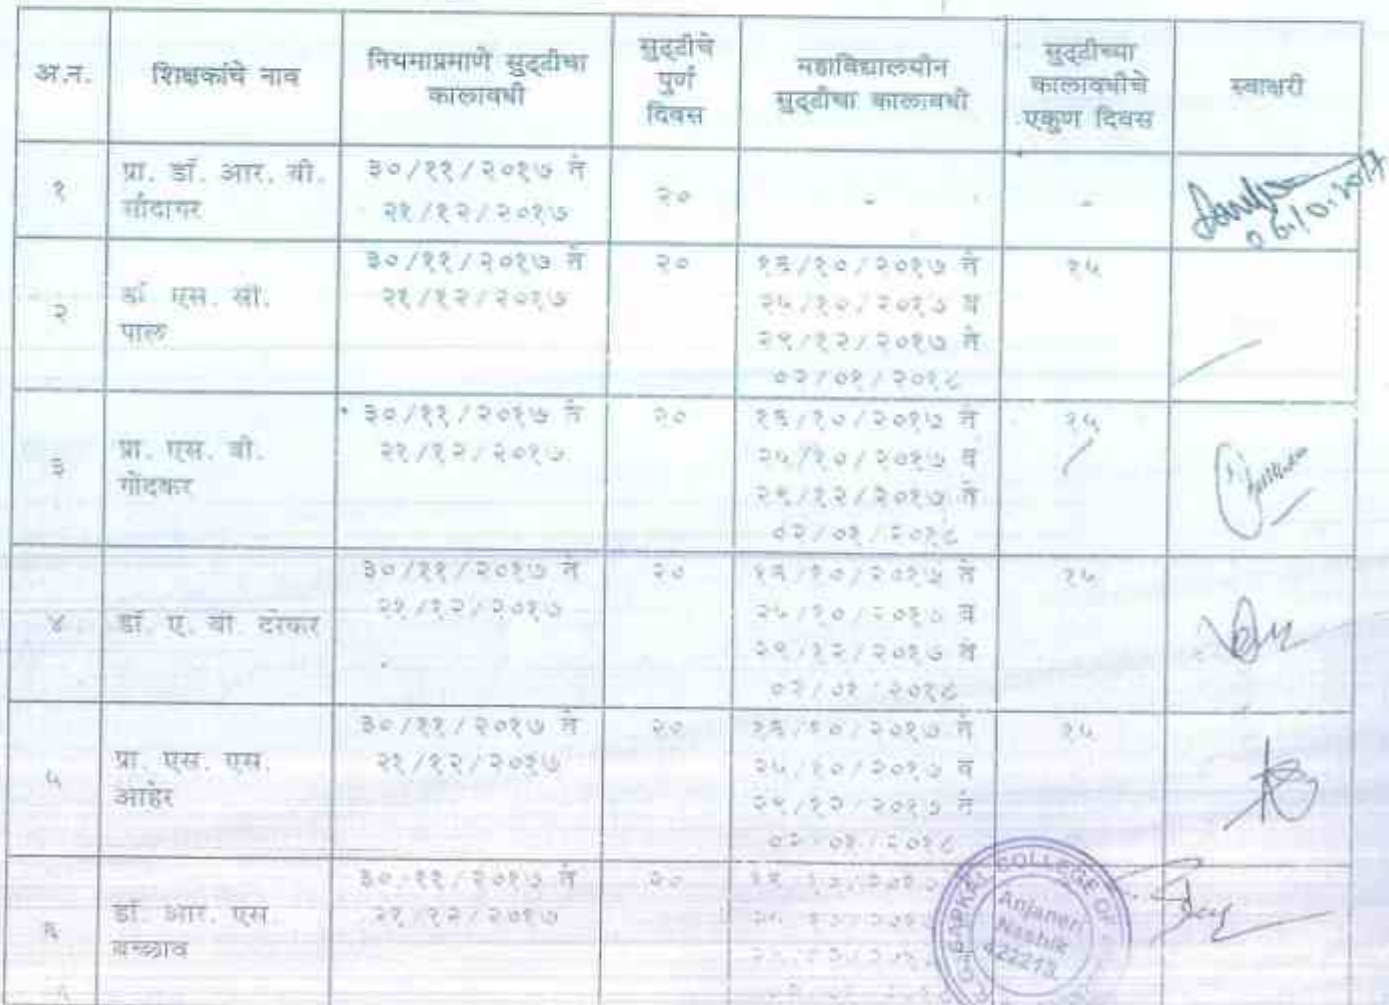 अ.न. शिक्षकांचे नाव नियमाप्रमाणे सुट्टीचा कालावधी सुट्टीचे पुर्ण दिवस महाविद्यालयीन सुट्टीचा कालावधी सुट्टीच्या कालावधीचे एकुण दिवस स्वाक्षरी
१ प्रा. डॉ. आर. बी. सौदागर ३०/११/२०१७ ते २१/१२/२०१७ २० - -
२ डॉ एस. सी. पाल ३०/११/२०१७ ते २१/१२/२०१७ २० १६/१०/२०१७ ते २५/१०/२०१७ व २९/१२/२०१७ ते ०२/०१/२०१८ १५
३ प्रा. एस. बी. गोंदकर ३०/११/२०१७ ते २१/१२/२०१७ २० १६/१०/२०१७ ते २५/१०/२०१७ व २९/१२/२०१७ ते ०२/०१/२०१८ १५
४ डॉ. ए. बी. दरेकर ३०/११/२०१७ ते २१/१२/२०१७ २० १६/१०/२०१७ ते २५/१०/२०१७ व २९/१२/२०१७ ते ०२/०१/२०१८ १५
५ प्रा. एस. एस. आहेर ३०/११/२०१७ ते २१/१२/२०१७ २० १६/१०/२०१७ ते २५/१०/२०१७ व २९/१२/२०१७ ते ०२/०१/२०१८ १५
६ डॉ. आर. एस. बच्छाव ३०/११/२०१७ ते २१/१२/२०१७ २०
COLLEGE OF
Anjaneri
Nashik
422213